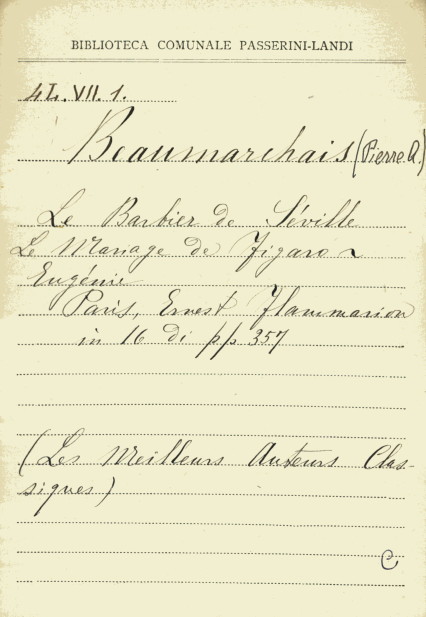 BIBLIOTECA COMUNALE PASSERINI-LANDI
4L. VII. 1.
Beaumarchais (Pierre A.)
Le Barbier de Séville
Le Mariage de Figaro ~
Eugénie
Paris, Ernest Flammarion
in 16 di pp 357
(Les Meilleurs Auteurs Clas-
siques)
C